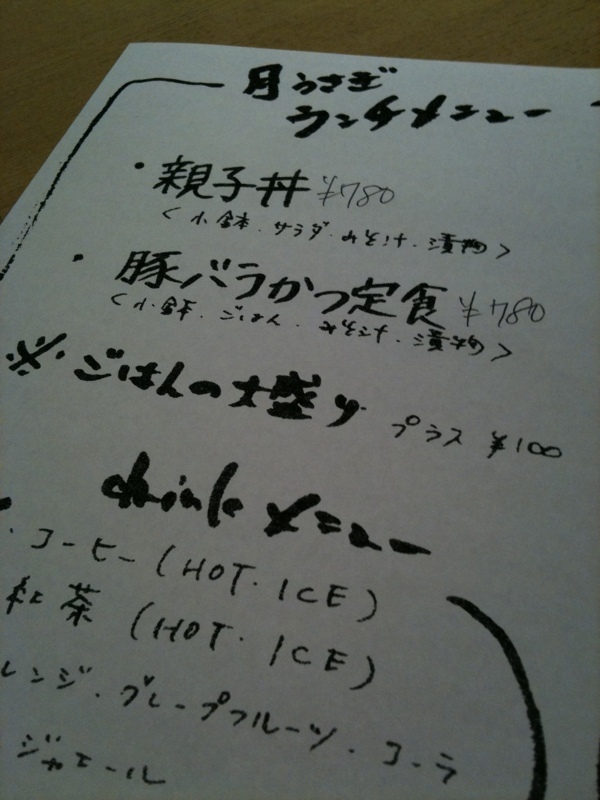 月うさぎ
ランチメニュー
・親子丼 ¥780
<小鉢・サラダ・みそ汁・漬物>
・豚バラかつ定食 ¥780
<小鉢・ごはん・みそ汁・漬物>
※ごはんの大盛り プラス ¥100
drink メニュー
・コーヒー(HOT・ICE)
紅茶(HOT・ICE)
レンジ・グレープフルーツ・コーラ
ジャエール